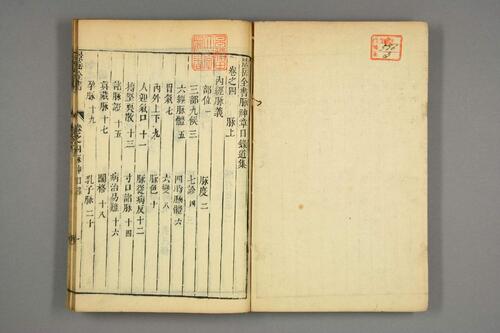 景岳全書脈神章目錄道集
卷之四 脈上
內經脈義
部位一 脈度二
三部九候三 七診四
六經脈體五 四時脈體六
胃氣七 六變八
內外上下九 脈色十
人迎氣口十一 脈從病反十二
搏堅耎散十三 寸口諸脈十四
諸脈證十五 病治易難十六
真藏脈十七 關格十八
孕脈十九 乳子脈二十